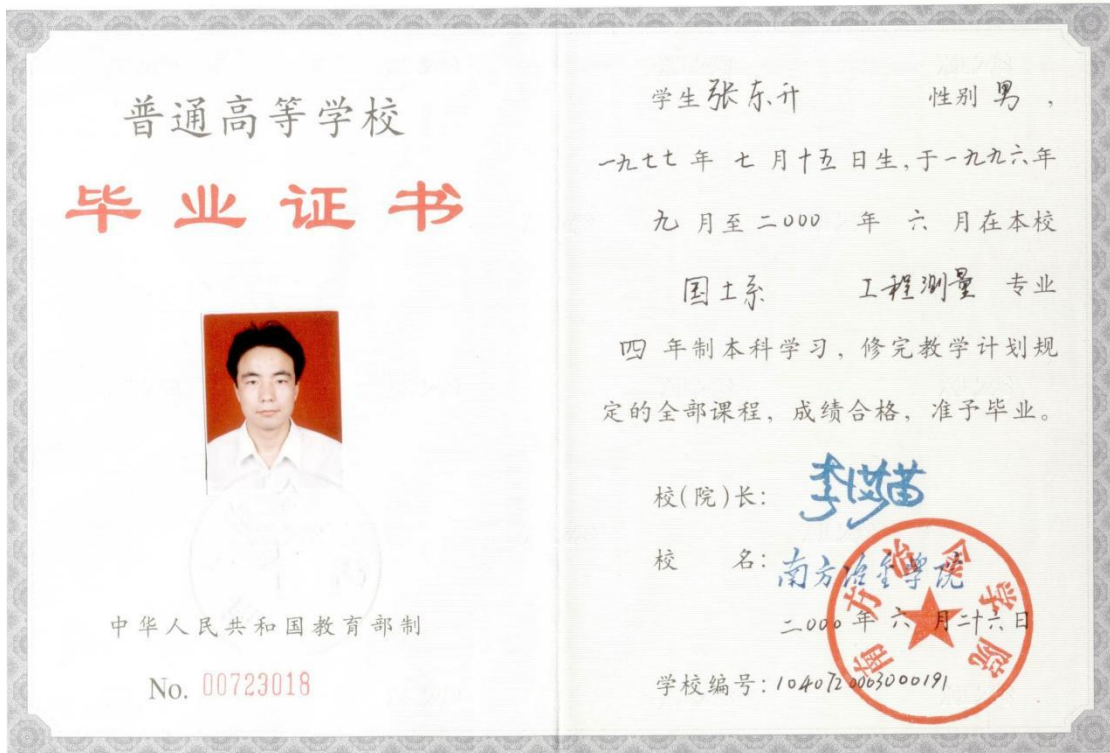 普通高等学校
毕业证书
中华人民共和国教育部制
No. 00723018
学生张东升 性别 男 ,
一九七七 年 七 月十五 日生,于一九九六年
九 月至 二000 年 六 月在本校
国土系 工程测量 专业
四 年制本科学习,修完教学计划规
定的全部课程,成绩合格,准予毕业。
校(院)长:
校 名: 南方冶金学院
二000 年 六 月二十六日
学校编号: 1040720003000191
南方冶金学院